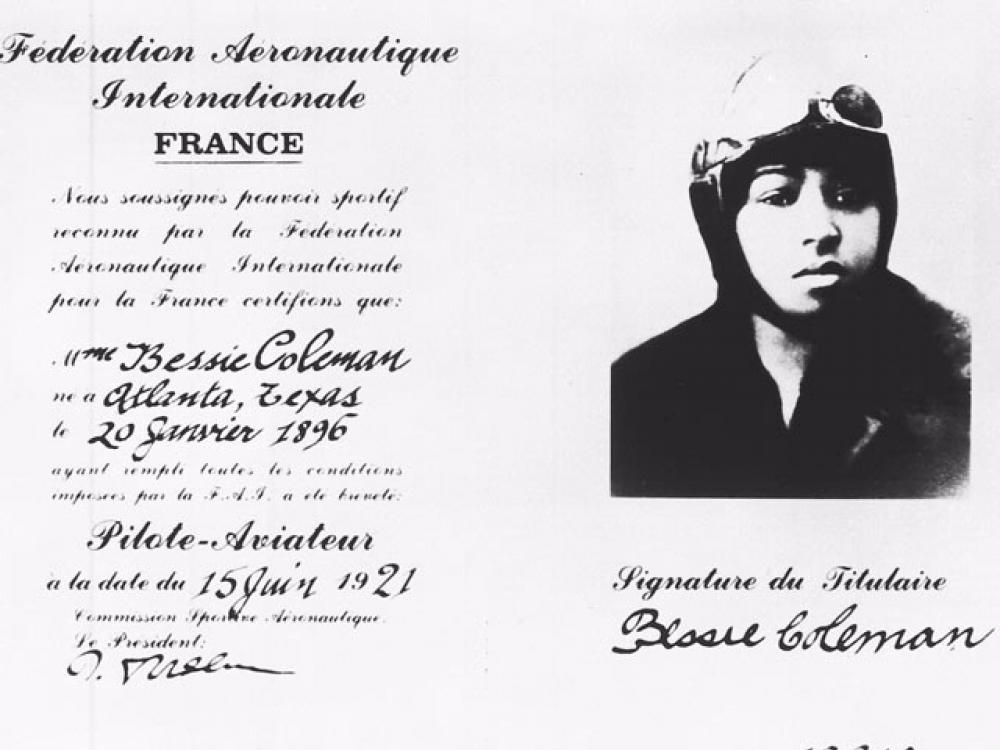 Fédération Aéronautique
Internationale
FRANCE
Nous soussignés pouvoir sportif
reconnu par la Fédération
Aéronautique Internationale
pour la France certifions que:
Mme Bessie Coleman
né à Atlanta, Texas
le 20 Janvier 1896
ayant rempli toutes les conditions
imposées par la F.A.I. a été breveté:
Pilote-Aviateur
à la date du 15 Juin 1921
Commission Sportive Aéronautique.
Le Président:
Signature du Titulaire
Bessie Coleman